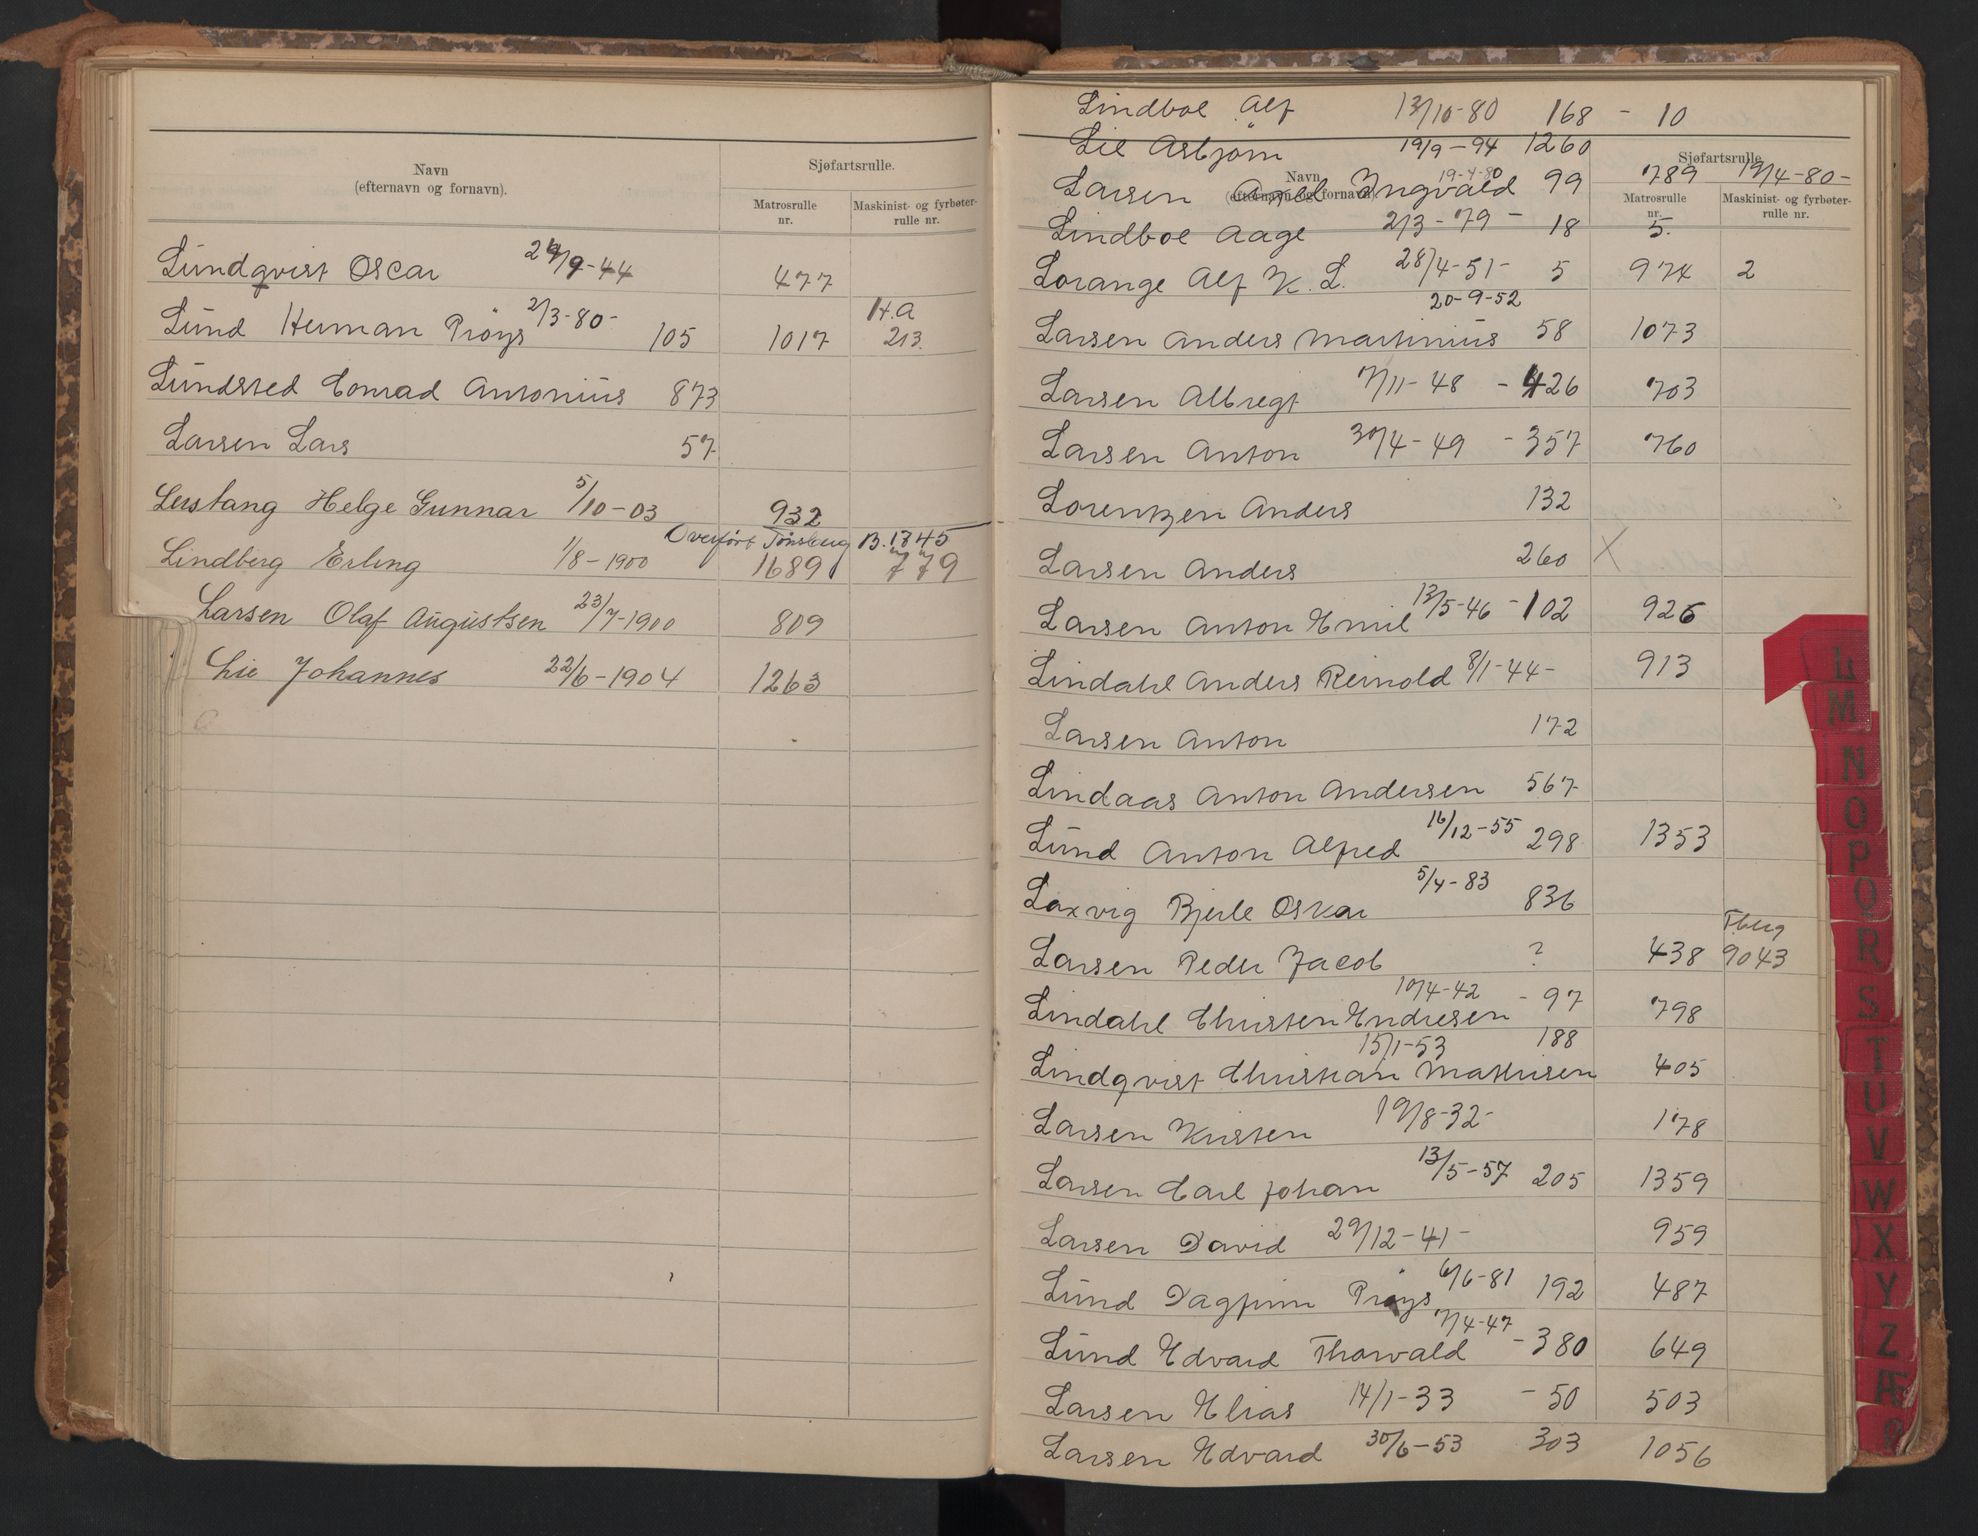 Navn
(efternavn og fornavn).
Sjøfartsrulle.
Matrosrulle
nr.
Maskinist- og fyrbøter-
rulle nr.
Lundqvist Oscar 29/9-44 477
Lund Herman Prøys 2/3-80- 105 1017 H.A 213.
Lundsted Conrad Antonius 873
Larsen Lars 57
Lerstang Helge Gunnar 5/10-03 932
Overført Tønsberg B. 1345
Lindberg Erling 1/8-1900 1689 779
Larsen Olaf Augustsen 23/7-1900 809
Lie Johannes 22/6-1904 1263
Lindboe Alf 13/10-80 168 - 10
Lie Asbjørn 19/9-94 1260
Navn
(efternavn og fornavn).
Sjøfartsrulle.
Matrosrulle
nr.
Maskinist- og fyrbøter-
rulle nr.
Larsen Axel Ingvald 19-4-80 99 789 19/4-80-
Lindboe Aage 2/3-79- 18 5.
Lorange Alf K. L. 28/4-51- 5 974 2
Larsen Anders Martinius 20-9-52 58 1073
Larsen Albregt 7/11-48 - 426 703
Larsen Anton 30/4-49 - 357 760
Lorentzen Anders 132
Larsen Anders 260 X
Larsen Anton Emil 13/5-46 - 102 926
Lindahl Anders Reinold 8/1-44- 913
Larsen Anton 172
Lindaas Anton Andersen 567
Lund Anton Alfred 16/12-55 298 1353
Laxvig Bjerle Oskar 5/4-83 836
Larsen Peder Jacob ? 438 Tberg 9043
Lindahl Christen Endresen 10/4-42 - 97 798
Lindqvist Christian Mathisen 15/1-53 188 405
Larsen Kristen 19/8-32- 178
Larsen Carl Johan 13/5-57 205 1359
Larsen David 29/12-41- 959
Lund Dagfinn Prøys 6/6-81 192 487
Lund Edvard Thorvald 7/4-47 - 380 649
Larsen Elias 14/1-33 - 50 503
Larsen Edvard 30/6-53 303 1056
L
M
N
O
P
Q
R
S
T
U
V
W
X
Y
Z
Æ
Ø